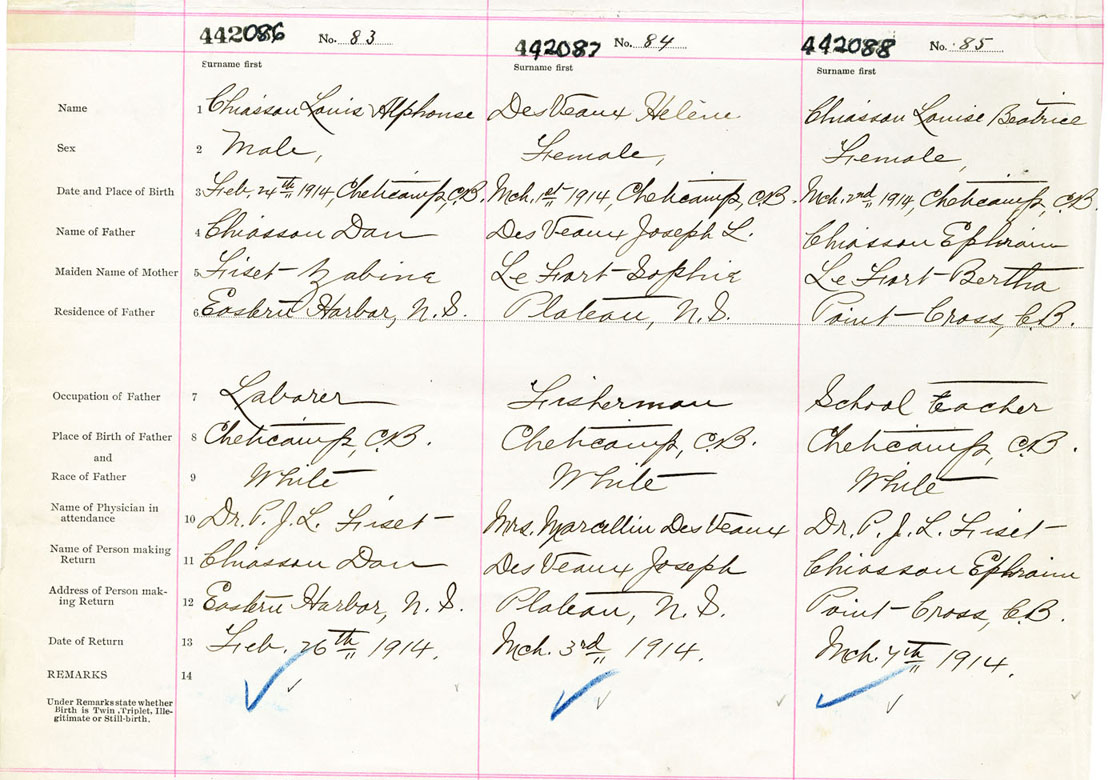 442086 No. 83 442087 No. 84 442088 No. 85
Surname first Surname first Surname first
Name 1 Chiasson Louis Alphonse DesVeaux Helène Chiasson Louise Beatrice
Sex 2 Male, Female, Female,
Date and Place of Birth 3 Feb. 24th 1914, Cheticamp, C.B. Mch. 1st 1914, Cheticamp, C.B. Mch. 2nd 1914, Cheticamp, C.B.
Name of Father 4 Chiasson Dan DesVeaux Joseph L. Chiasson Ephraim
Maiden Name of Mother 5 Fiset Zabine Le Fort Sophie Le Fort Bertha
Residence of Father 6 Eastern Harbor, N.S. Plateau, N.S. Point Cross, C.B.
Occupation of Father 7 Laborer Fisherman School Teacher
Place of Birth of Father 8 Cheticamp, C.B. Cheticamp, C.B. Cheticamp, C.B.
and
Race of Father 9 White White White
Name of Physician in
attendance 10 Dr. P. J. L. Fiset Mrs. Marcellin DesVeaux Dr. P. J. L. Fiset
Name of Person making
Return 11 Chiasson Dan DesVeaux Joseph Chiasson Ephraim
Address of Person mak-
ing Return 12 Eastern Harbor, N.S. Plateau, N.S. Point Cross, C.B.
Date of Return 13 Feb. 26th 1914. Mch. 3rd 1914. Mch. 4th 1914.
REMARKS 14
Under Remarks state whether
Birth is Twin, Triplet, Ille-
gitimate or Still-birth.